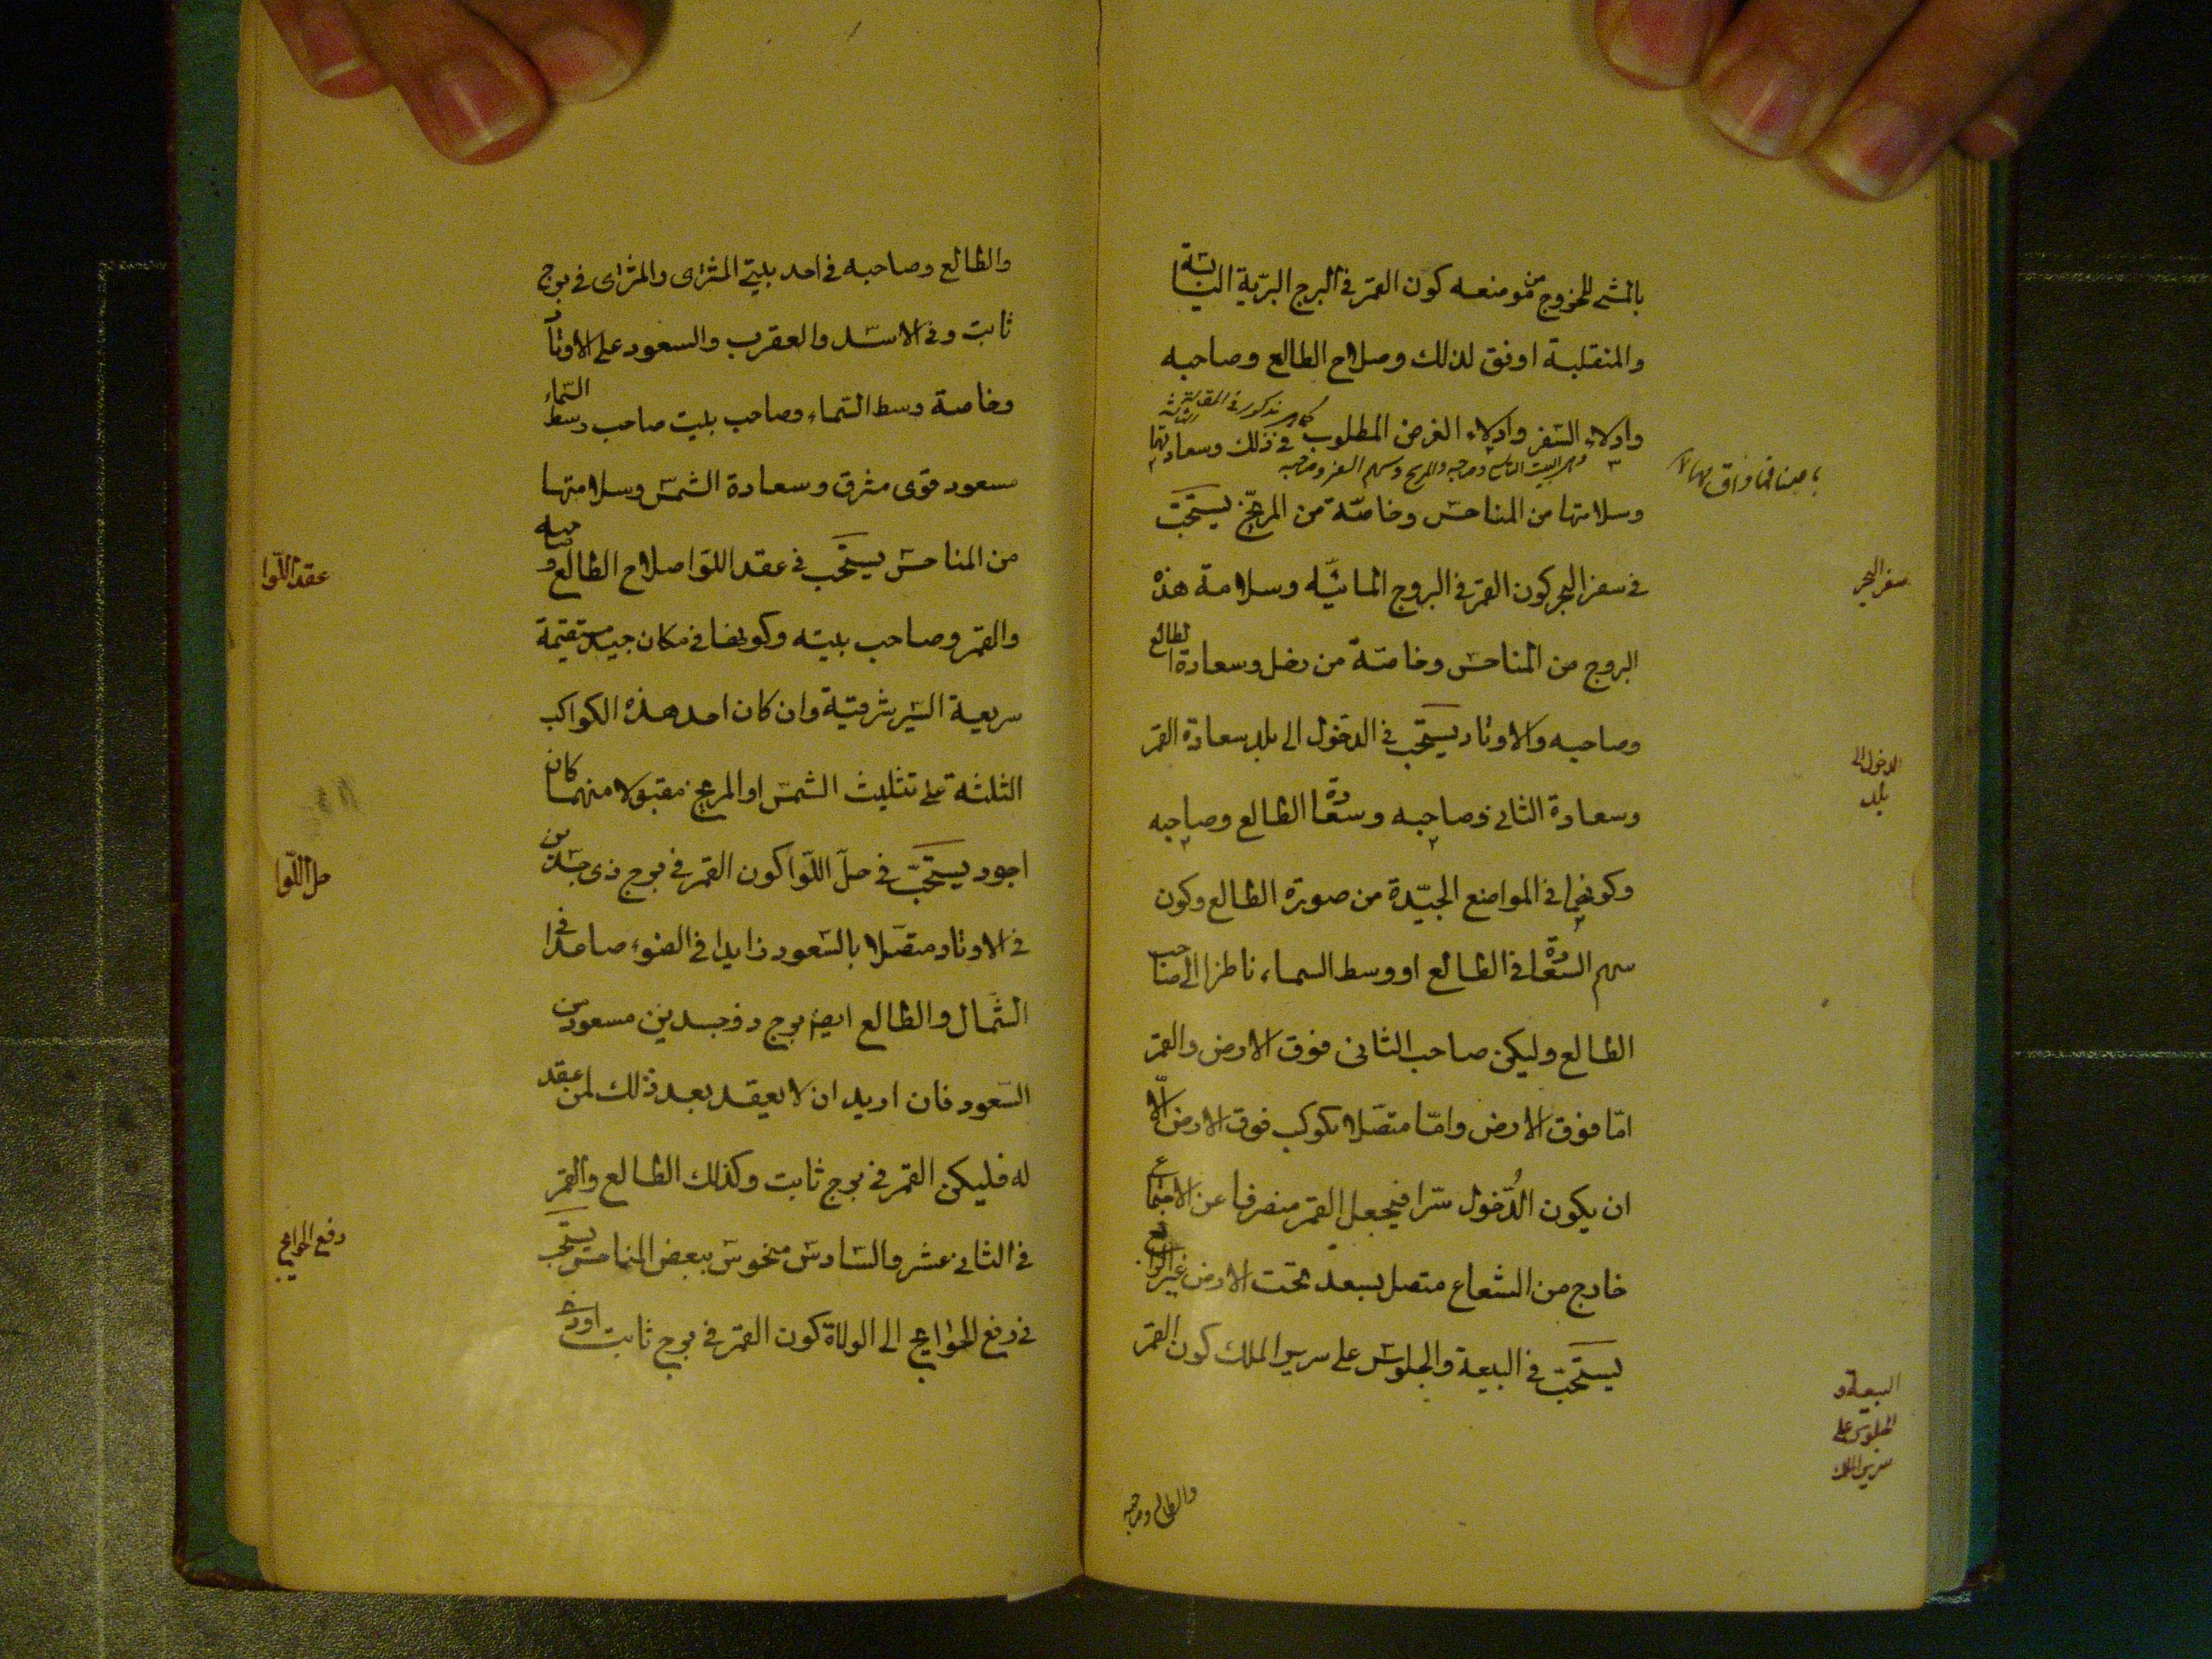 بالمشي للخروج من موضعه كون القمر في البرج البرّية اليابسة
والمنقلبة اوفق لذلك وصلاح الطالع وصاحبه
كما هو مذكور في المقالة الثالثة
وادلاء السفر وادلاء الغرض المطلوب في ذلك وسعادتها
وهي البيت التاسع وصاحبه والمريخ وسهم السفر وصاحبه
وسلامتها من المناحس وخاصّة من المريخ يستحبّ
سفر البحر
في سفر البحر كون القمر في البروج المائيّه وسلامة هذه
البروج من المناحس وخاصّة من زحل وسعادة الطالع
وصاحبه والاوتاد يستحبّ في الدخول الى بلد سعادة القمر
الدخول الى
بلد
وسعادة الثاني وصاحبه وسعادة الطالع وصاحبه
وكونهما في المواضع الجيّدة من صورة الطالع وكون
سهم السعادة في الطالع او وسط السماء ناظرا الى صاحب
الطالع وليكن صاحب الثاني فوق الارض والقمر
امّا فوق الارض وامّا متصلا بكوكب فوق الارض الّا
ان يكون الدّخول سّرا فيجعل القمر منصرفا عن الاجتماع
خارج من الشعاع متصل بسعد تحت الارض غير الراجع
يستحبّ في البيعة والجلوس على سرير الملك كون القمر
البيعة و
الجلوس على
سرير الملك
والطالع وصاحبه
والطالع وصاحبه في احد بيتي المشترى والمشترى في برج
ثابت وفى الاسد والعقرب والسعود على الاوتاد
وخاصة وسط السّماء وصاحب بيت صاحب وسط السّماء
مسعود قوى مشرق وسعادة الشمس وسلامتها
عقد اللّوا
من المناحس يستحب في عقد اللوا صلاح الطالع وصاحبه
والقمر وصاحب بيته وكونها في مكان جيد مستقيمة
سريعة السّير شرقيّة وان كان احد هذه الكواكب
الثلثة على تثليث الشمس او المريخ مقبولا منهما كان
حل اللّوا
اجود يستحبّ في حلّ اللّوا كون القمر في برج ذى جسدين
في الاوتاد متصلا بالسّعود زايدا في الضوء صاعدا في
الشّمال والطالع ايضا برج ذو جسدين مسعود من
السّعود فان اريد ان لا يعقد بعد ذلك لمن عقد
له فليكن القمر في برج ثابت وكذلك الطالع والقمر
رفع الحوايج
في الثاني عشر والسّادس منحوس ببعض المناحس يستحب
في رفع الحوايج الى الولاة كون القمر في برج ثابت او ذى